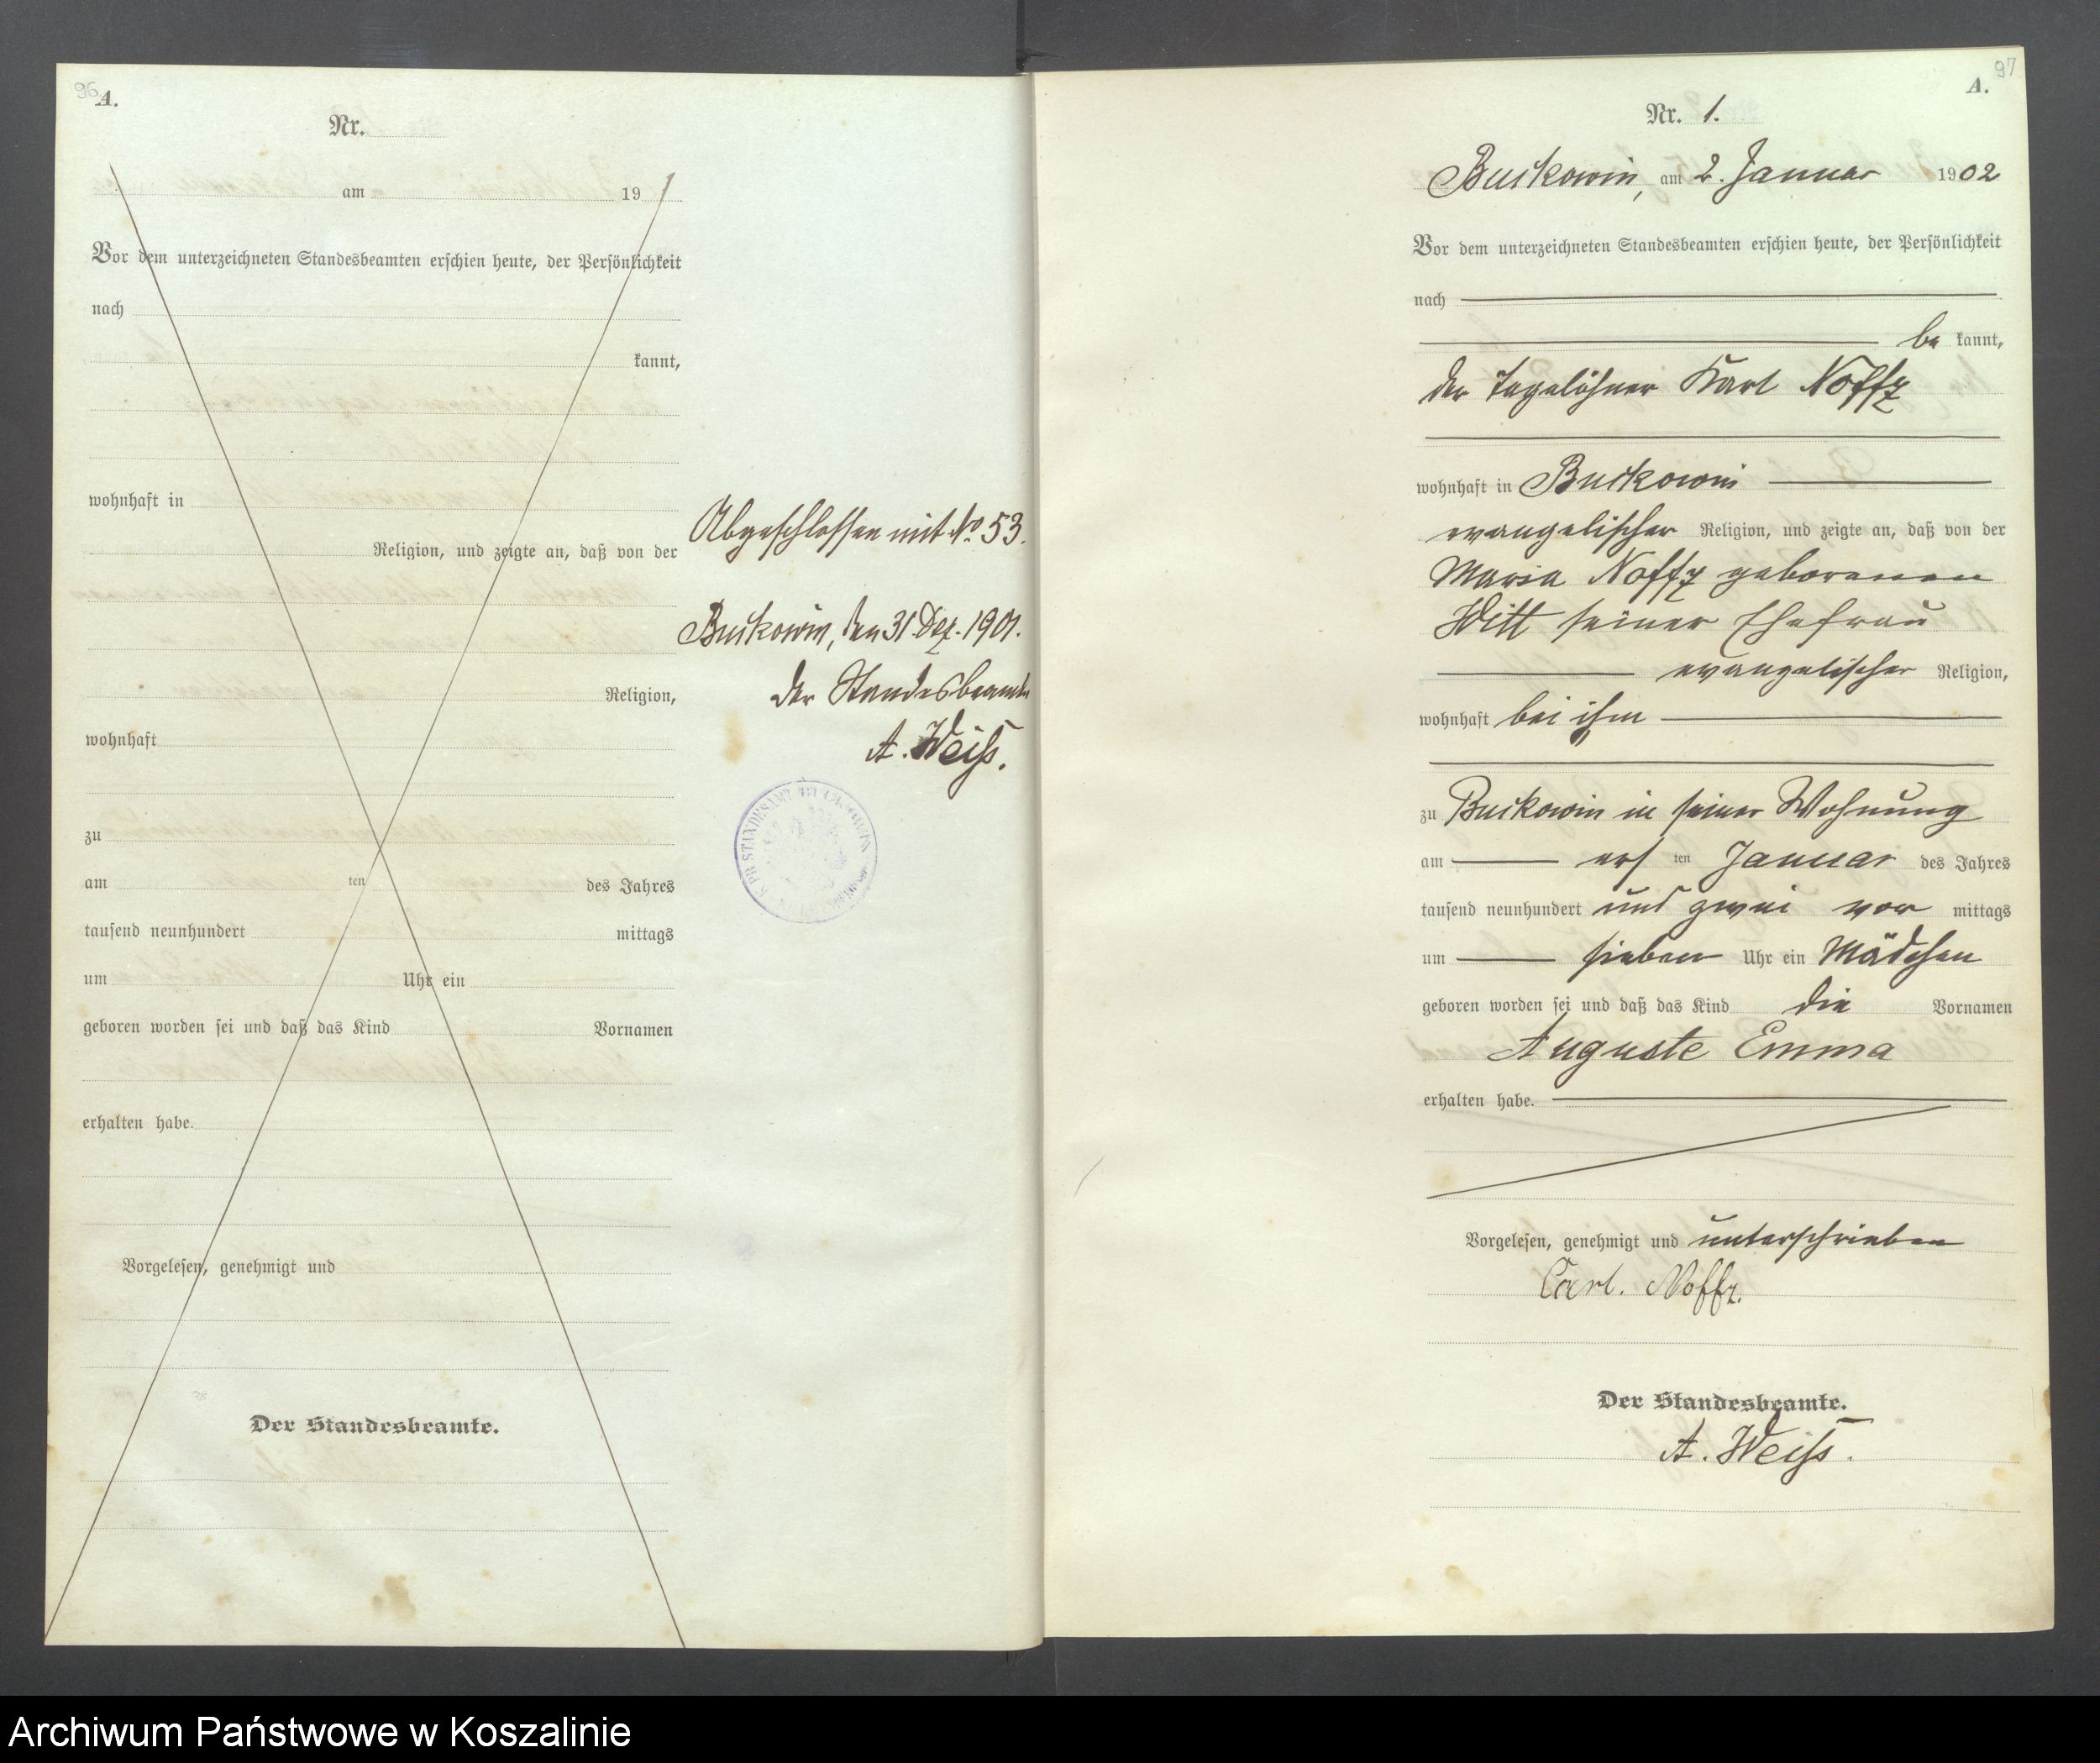 96
A.
Nr.
am 19
Vor dem unterzeichneten Standesbeamten erschien heute, der Persönlichkeit
nach
kannt,
wohnhaft in
Religion, und zeigte an, daß von der
Religion,
wohnhaft
zu
am ten des Jahres
tausend neunhundert mittags
um Uhr ein
geboren worden sei und daß das Kind Vornamen
erhalten habe.
Vorgelesen, genehmigt und
Der Standesbeamte.
Abgeschlossen mit No 53.
Buckowin, den 31. Dez. 1901.
Der Standesbeamte
A. Weiß.
97
A.
Nr. 1.
Buckowin, am 2. Januar 1902
Vor dem unterzeichneten Standesbeamten erschien heute, der Persönlichkeit
nach
be kannt,
der Tagelöhner Karl Noffz
wohnhaft in Buckowin
evangelischer Religion, und zeigte an, daß von der
Maria Noffz geborenen
Witt seiner Ehefrau
evangelischer Religion,
wohnhaft bei ihm
zu Buckowin in seiner Wohnung
am ers ten Januar des Jahres
tausend neunhundert und zwei vor mittags
um sieben Uhr ein Mädchen
geboren worden sei und daß das Kind die Vornamen
Auguste Emma
erhalten habe.
Vorgelesen, genehmigt und unterschrieben
Carl. Noffz.
Der Standesbeamte.
A. Weiß.
Archiwum Państwowe w Koszalinie